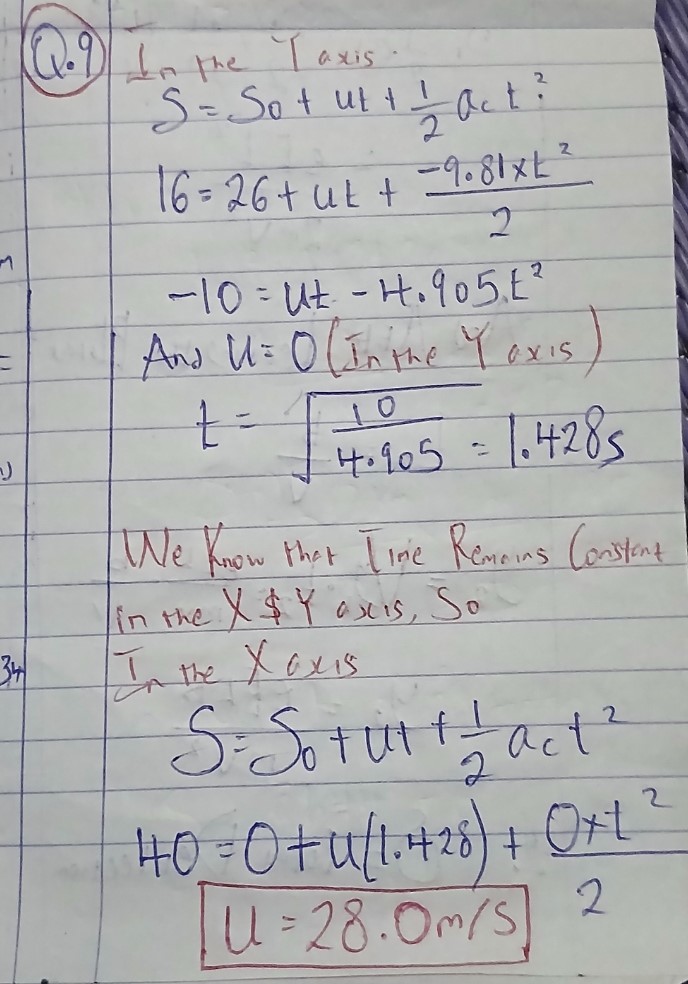 Q.9
In the Y axis.
S = So + ut + 1/2 ac t²
16 = 26 + ut + -9.81xt²/2
-10 = ut - 4.905t²
And U = 0 (In the Y axis)
t = √(10/4.905) = 1.428s
We Know that Time Remains Constant
in the X $ Y axis, So
In the X axis
S = So + ut + 1/2 ac t²
40 = 0 + u(1.428) + 0xt²/2
U = 28.0m/s
34